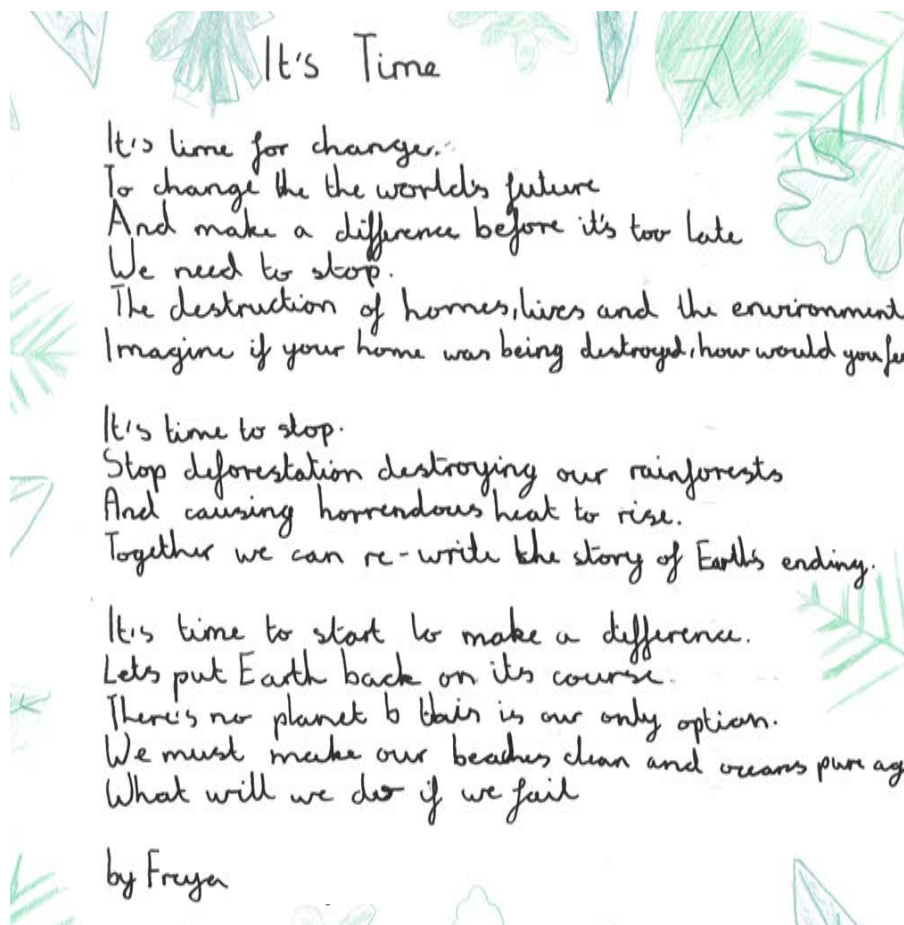 It's Time
It's time for change.
To change the the world's future
And make a difference before it's too late
We need to stop.
The destruction of homes, lives and the environment
Imagine if your home was being destroyed, how would you fe
It's time to stop.
Stop deforestation destroying our rainforests
And causing horrendous heat to rise.
Together we can re-write the story of Earth's ending.
It's time to start to make a difference.
Lets put Earth back on its course.
There's no planet b this is our only option.
We must make our beaches clean and oceans pure ag
What will we do if we fail
by Freya